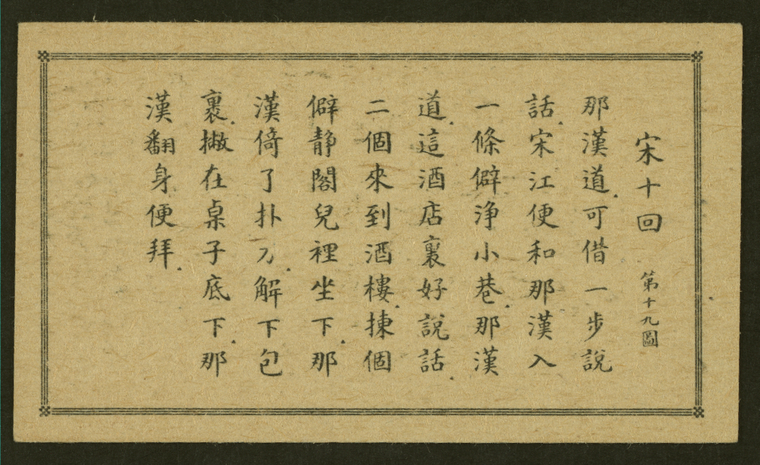 宋十回 第十九圖
那漢道.可借一步說
話.宋江便和那漢入
一條僻淨小巷.那漢
道.這酒店裏好說話.
二個來到酒樓.揀個
僻靜閣兒裡坐下.那
漢倚了扑刀.解下包
裹.撇在桌子底下.那
漢翻身便拜.